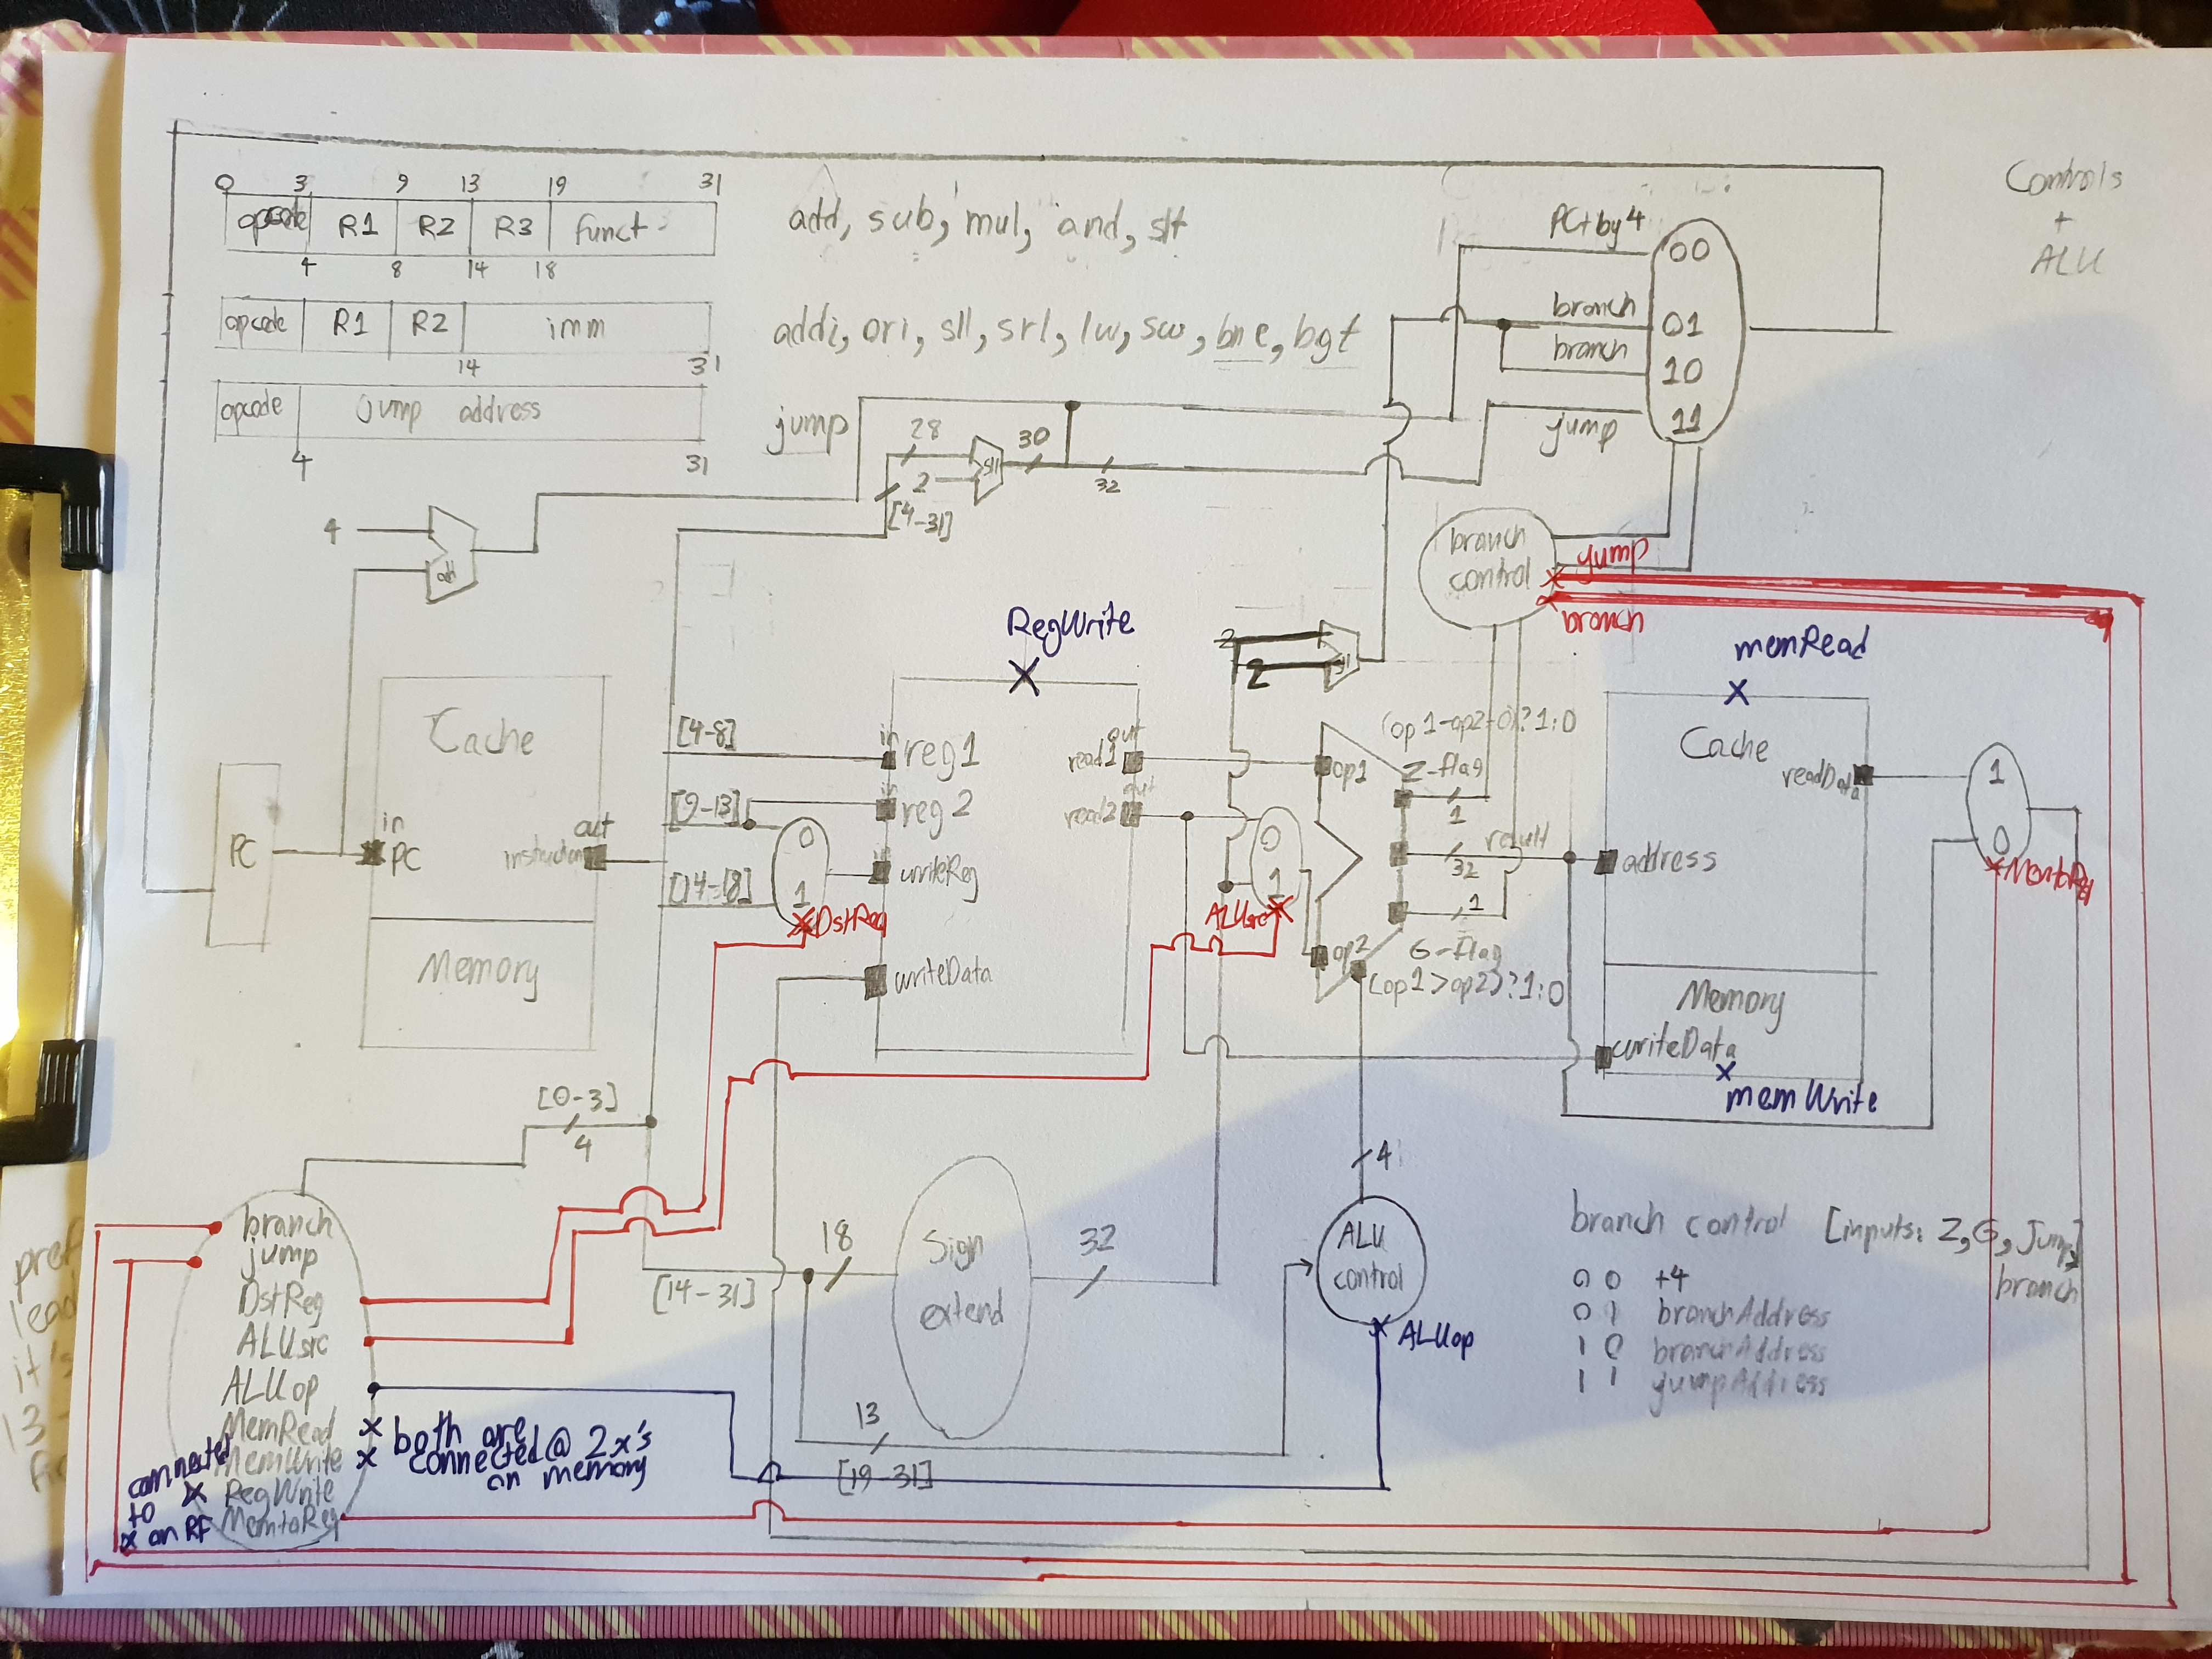 0 3 9 13 19 31
opcode R1 R2 R3 funct
4 8 14 18
add, sub, mul, and, slt
opcode R1 R2 imm
14 31
addi, ori, sll, srl, lw, sw, bne, bgt
opcode jump address
4 31
jump
Controls
+
ALU
PC+by4
00
branch
01
branch
10
jump
11
28
2
sll
30
32
[4-31]
4
add
branch
control
jump
branch
RegWrite
memRead
2
2
sll
Cache
in
PC
out
instruction
Memory
PC
[4-8]
[9-13]
[14-18]
0
1
DstReg
in
reg 1
in
reg 2
in
writeReg
writeData
out
read1
out
read2
0
1
ALUsrc
(op1-op2=0)?1:0
op1
Z-flag
1
result
32
1
op2
G-flag
(op1>op2)?1:0
Cache
readData
address
Memory
writeData
memWrite
1
0
MemtoReg
[0-3]
4
4
branch
jump
DstReg
ALUsrc
ALUop
MemRead
MemWrite
RegWrite
MemtoReg
both are
connected @ 2 x's
on memory
connected
to
x on RF
[14-31]
18
Sign
extend
32
13
[19-31]
ALU
control
ALUop
branch control [inputs: Z, G, Jump,
branch]
0 0 +4
0 1 branchAddress
1 0 branchAddress
1 1 jumpAddress
pref
lead
it's
13